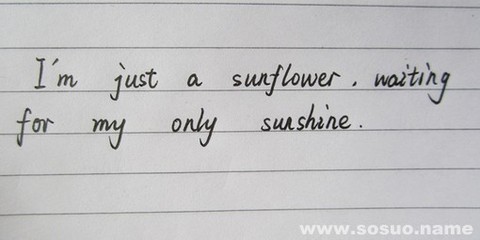 I'm just a sunflower. waiting
for my only sunshine.
www.sosuo.name